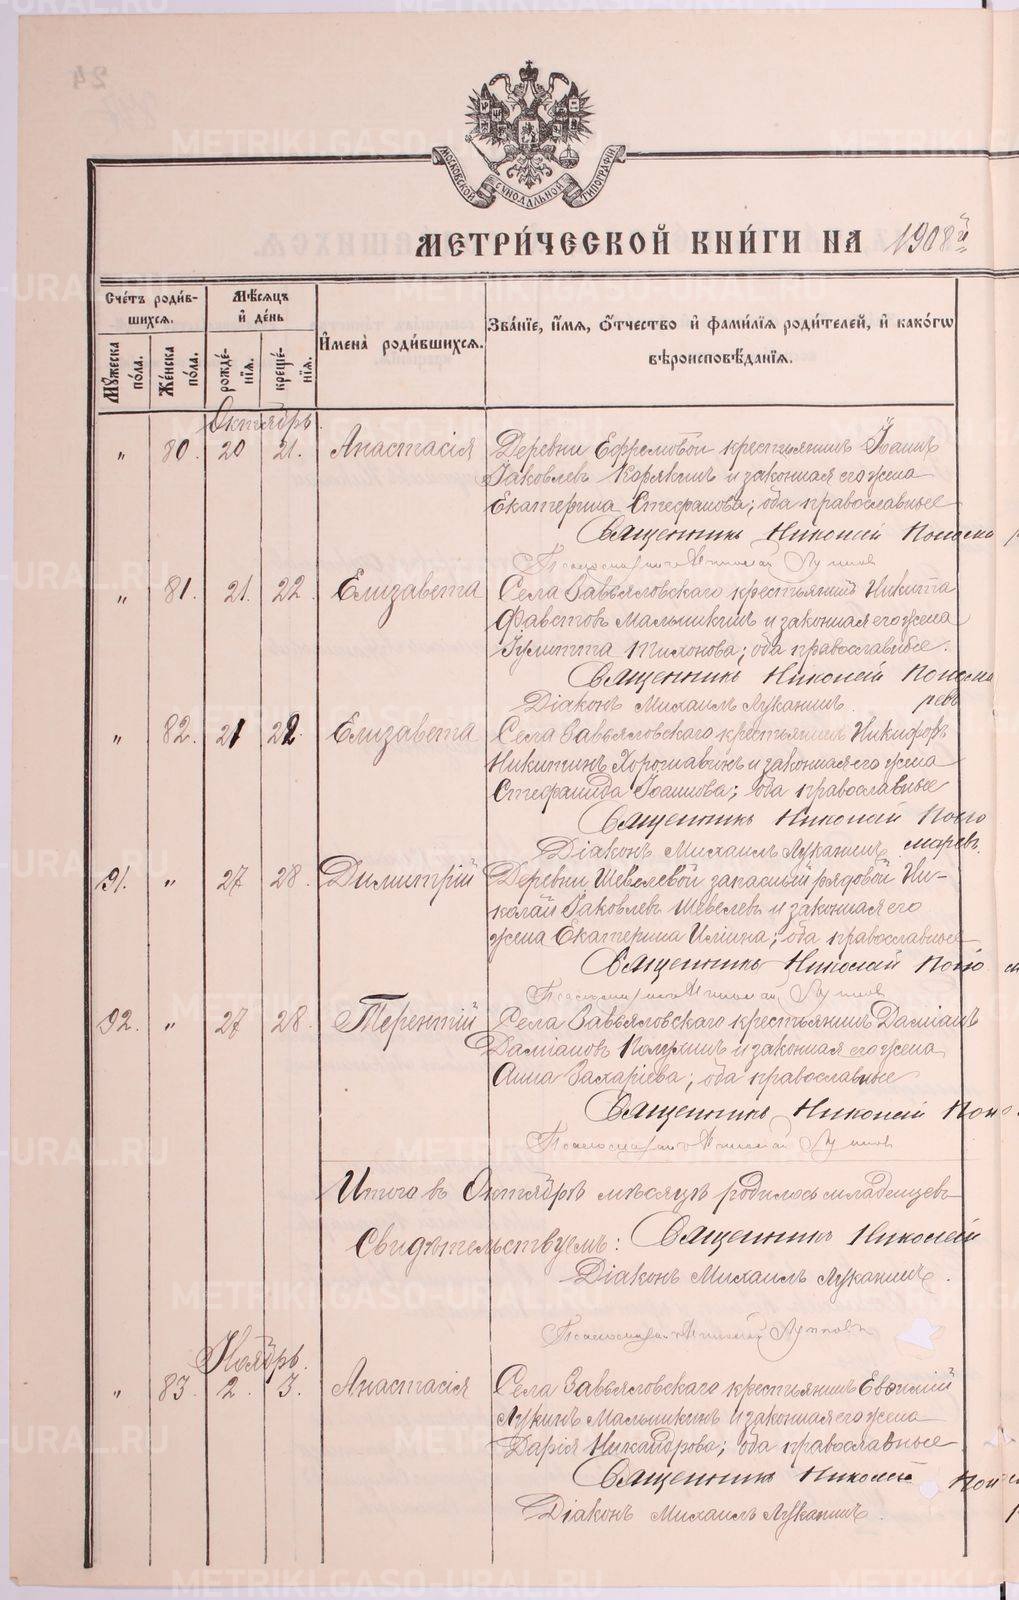 МОСКОВСКОЙ СѴНОДАЛЬНОЙ ТИПОГРАФІИ
МЕТРИ́ЧЕСКОЙ КНИ́ГИ НА 1908й
Сче́тъ роди́в-
шихся.
Мѣ́сяцъ
и҆ де́нь
И҆мена̀ роди́вшихся.
Зва́нїе, и҆́мя, ѻ҆́тчество и҆ фами́лїя роди́телей, и҆ како́гѡ
вѣроисповѣ́данїя.
Мꙋ́жеска по́ла.
Же́нска по́ла.
рожде́нїя.
креще́нїя.
Октябрь.
„ 80. 20 21. Анастасія Деревни Ефремовой крестьянинъ Іоаннъ
Іаковлевъ Корякинъ и законная его жена
Екатерина Стефанова; оба православные
Священникъ Николай Понома
„ 81. 21. 22. Елизавета Села Завьяловскаго крестьянинъ Никита
Фавстовъ Мальшикинъ и законная его жена
Іулитта Тихонова; оба православные.
Священникъ Николай Понома
Діаконъ Михаилъ Луканинъ. ревъ
„ 82. 21 22. Елизавета Села Завьяловскаго крестьянинъ Никифоръ
Никитинъ Хорошавинъ и законная его жена
Стефанида Іоаннова; оба православные
Священникъ Николай Поно
Діаконъ Михаилъ Луканинъ. маревъ.
91. „ 27 28. Димитрій Деревни Шевелевой запасный рядовой Ни-
колай Іаковлевъ Шевелевъ и законная его
жена Екатерина Иліина; оба православные
Священникъ Николай Поно
92. „ 27 28. Терентій Села Завьяловскаго крестьянинъ Даміанъ
Даміановъ Полухинъ и законная его жена
Анна Захаріева; оба православные
Священникъ Николай Поно
Итого въ Октябрѣ мѣсяцѣ родилось младенцевъ
Свидѣтельствуемъ: Священникъ Николай
Діаконъ Михаилъ Луканинъ.
Ноябрь.
„ 83. 2. 3. Анастасія Села Завьяловскаго крестьянинъ Евѳимій
Лукинъ Мальшикинъ и законная его жена
Дарія Никандрова; оба православные
Священникъ Николай Пон
Діаконъ Михаилъ Луканинъ.
METRIKI.GASO-URAL.RU